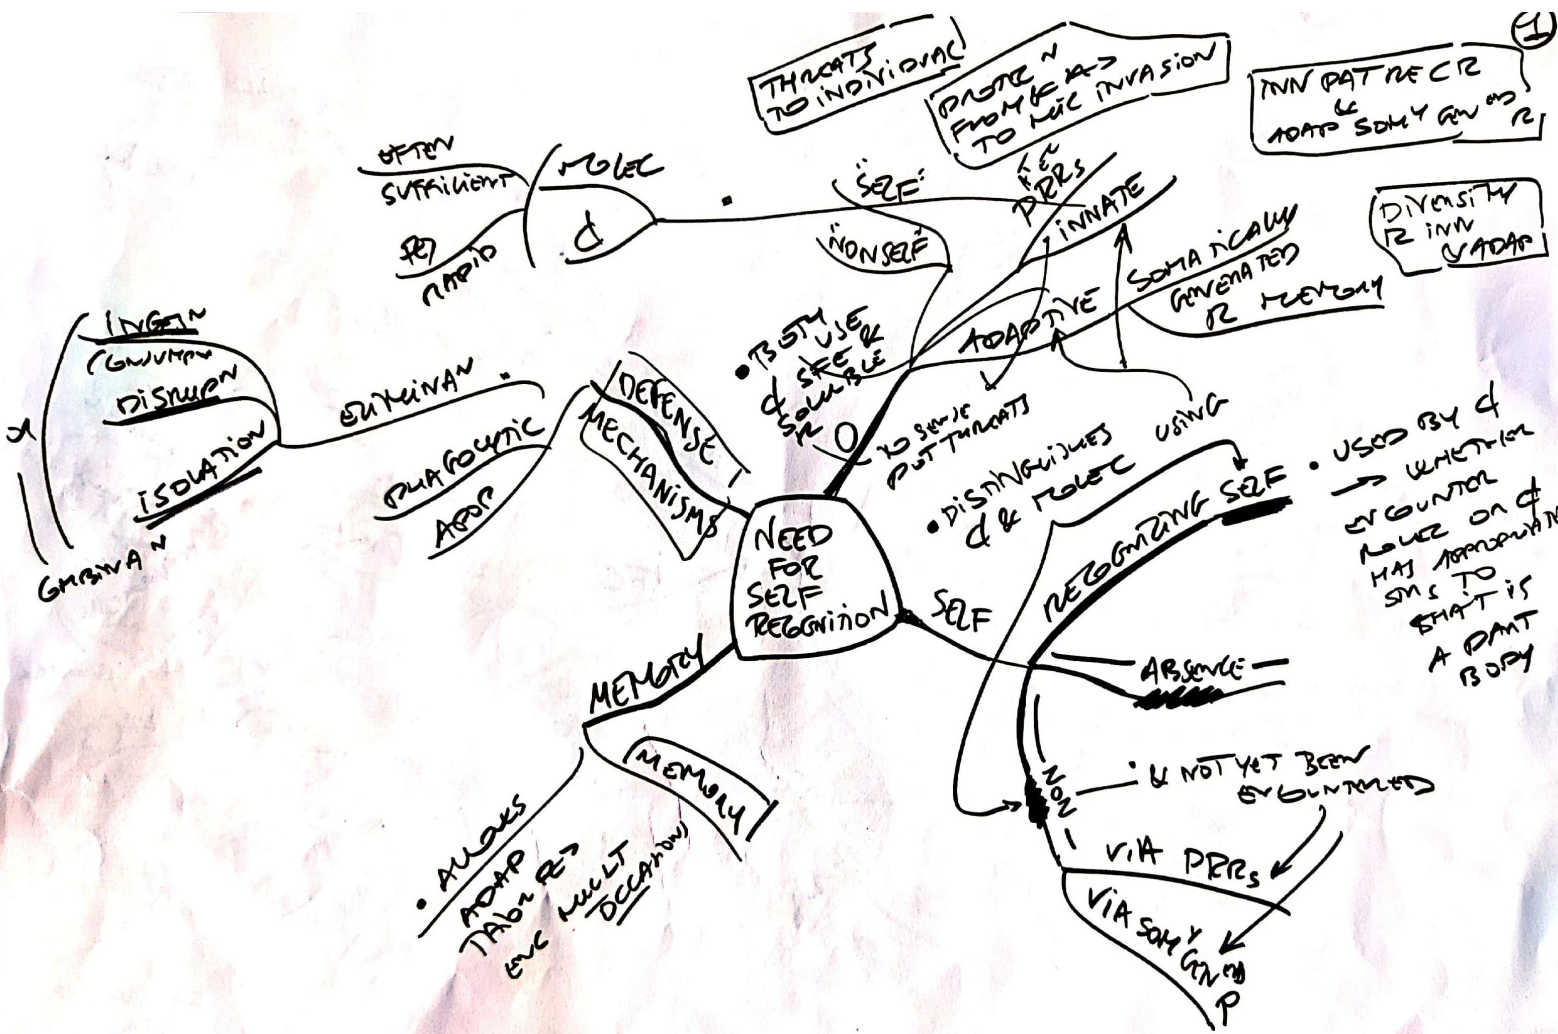 1
THREATS
TO INDIVIDUAL
TO MIC INVASION
INN PAT REC R
&
ADAP SOM Y GEN ED
R
DIVERSITY
R INN
& ADAP
OFTEN
SUFFICIENT
RAPID
MOLEC
"SELF"
"NONSELF"
PRRs
INNATE
ADAPTIVE
SOMATICALLY
GENERATED
R MEMORY
• BOTH USE
&
SOLUBLE
R
TO SENSE
PUT THREATS
• DISTINGUISHES
& MOLEC
USING
DEFENSE
MECHANISMS
ELIMINAN
INGEN
DISRUPN
ISOLATION
COMBINA N
PHAGOCYTIC
APOP
NEED
FOR
SELF
RECOGNITION
SELF
RECOGNIZING SELF
• USED BY
→ WHETHER
ENCOUNTER
MOLEC OR
HAS APPROPRIATE
SMS TO
THAT IS
A PART
BODY
ABSENCE
NON
• & NOT YET BEEN
ENCOUNTERED
VIA PRRs
VIA SOM Y
GEN ED
R
MEMORY
MEMORY
• ALLOWS
ADAP
TAIOR RES
ENC MULT
OCCASIONS